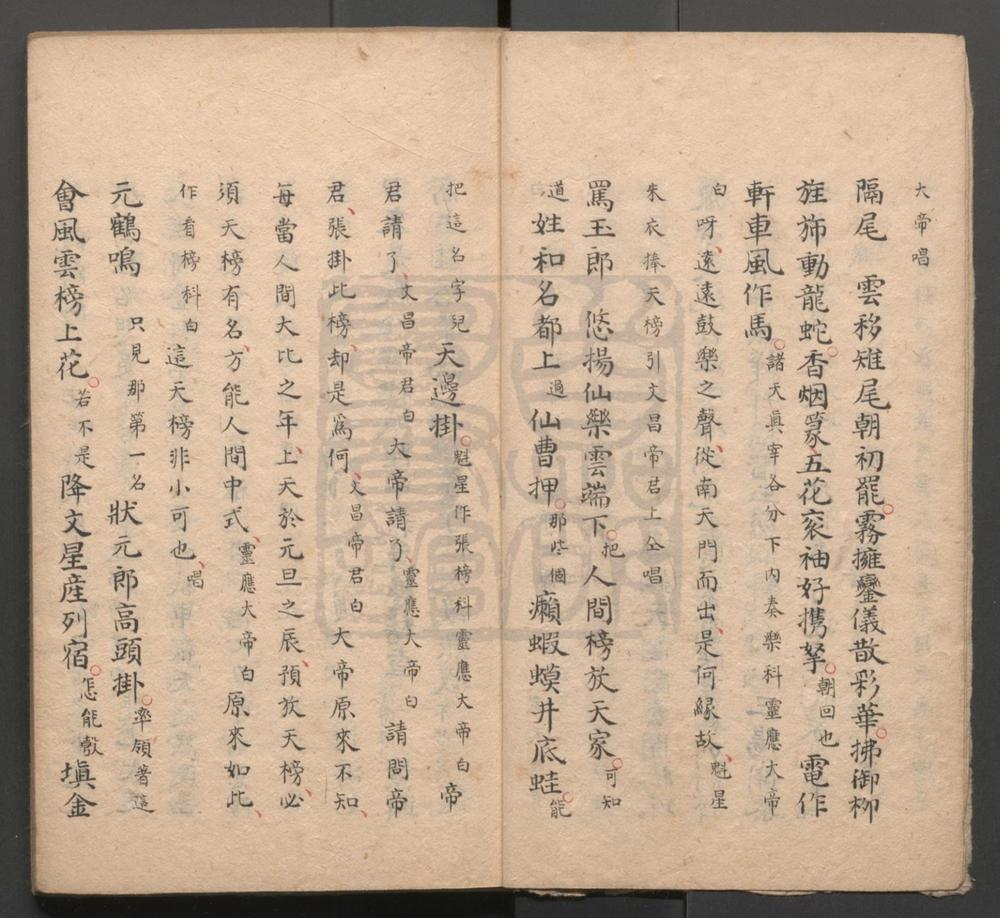 大帝唱
隔尾　雲移雉尾朝初罷霧擁鑾儀散彩華拂御柳
旌斾動龍蛇香烟篆五花衮袖好携拏朝回也電作
軒車風作馬諸天眞宰各分下内奏樂科靈應大帝
白呀遠遠鼓樂之聲從南天門而出是何緣故魁星
朱衣捧天榜引文昌帝君上仝唱
罵玉郎　悠揚仙樂雲端下把人間榜放天家可知
道姓和名都上過仙曹押那些個癩蝦蟆井底蛙能
把這名字兒天邊掛魁星作張榜科靈應大帝白帝
君請了文昌帝君白大帝請了靈應大帝白請問帝
君張掛此榜却是爲何文昌帝君白大帝原來不知
每當人間大比之年上天於元旦之辰預放天榜必
須天榜有名方能人間中式靈應大帝白原來如此
作看榜科白這天榜非小可也唱
元鶴鳴只見那第一名狀元郎高頭掛率領著這
會風雲榜上花若不是降文星産列宿怎能彀塡金